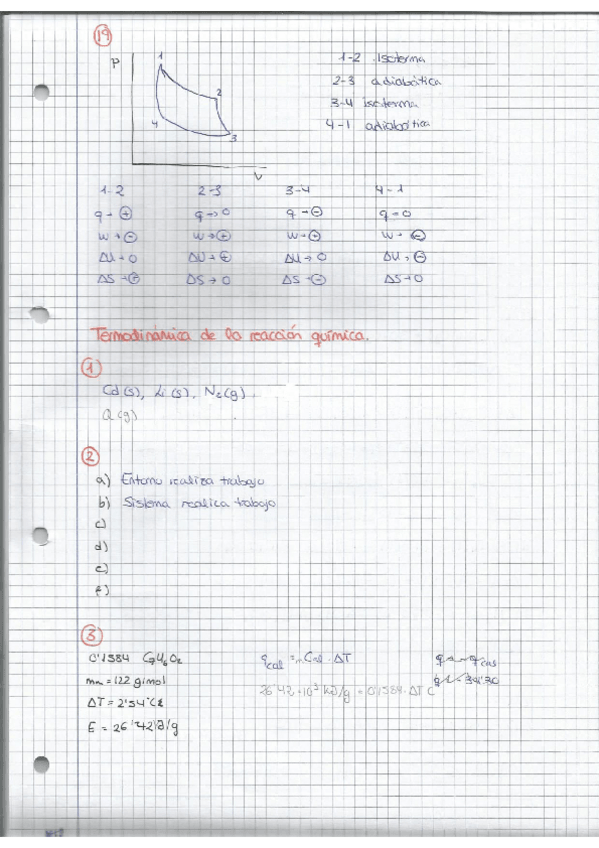 19
P
1
2
3
4
V
1-2 Isoterma
2-3 adiabática
3-4 isoterma
4-1 adiabática
1-2 2-3 3-4 4-1
q → ⊕ q → 0 q → ⊖ q = 0
W → ⊖ W → ⊕ W → ⊕ W → ⊖
ΔU → 0 ΔU → ⊕ ΔU → 0 ΔU → ⊖
ΔS → ⊕ ΔS → 0 ΔS → ⊖ ΔS → 0
Termodinámica de la reacción química.
1
Cd(s), Li(s), Ne(g).
2
a) Entorno realiza trabajo
b) Sistema realica trabajo
c)
d)
e)
f)
3
0'1584 C7H6O2
mm = 122 g/mol
ΔT = 2'54°C
E = 26'42